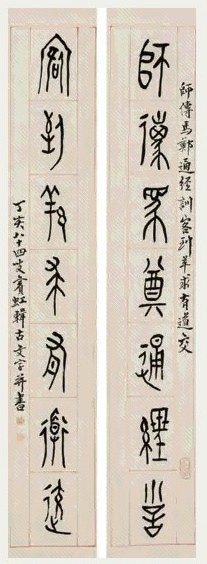 師傳馬鄭通經訓客到羊求有道交
師傳馬鄭通經訓
客到羊求有道交
丁亥八十四叟賓虹釋古文字并書